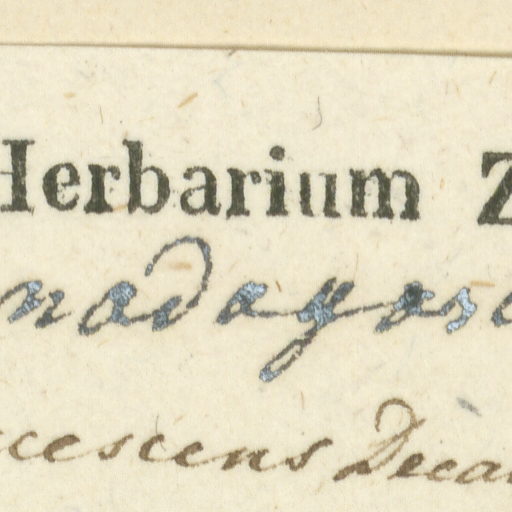 Herbarium Z
madagasc
cescens Decai